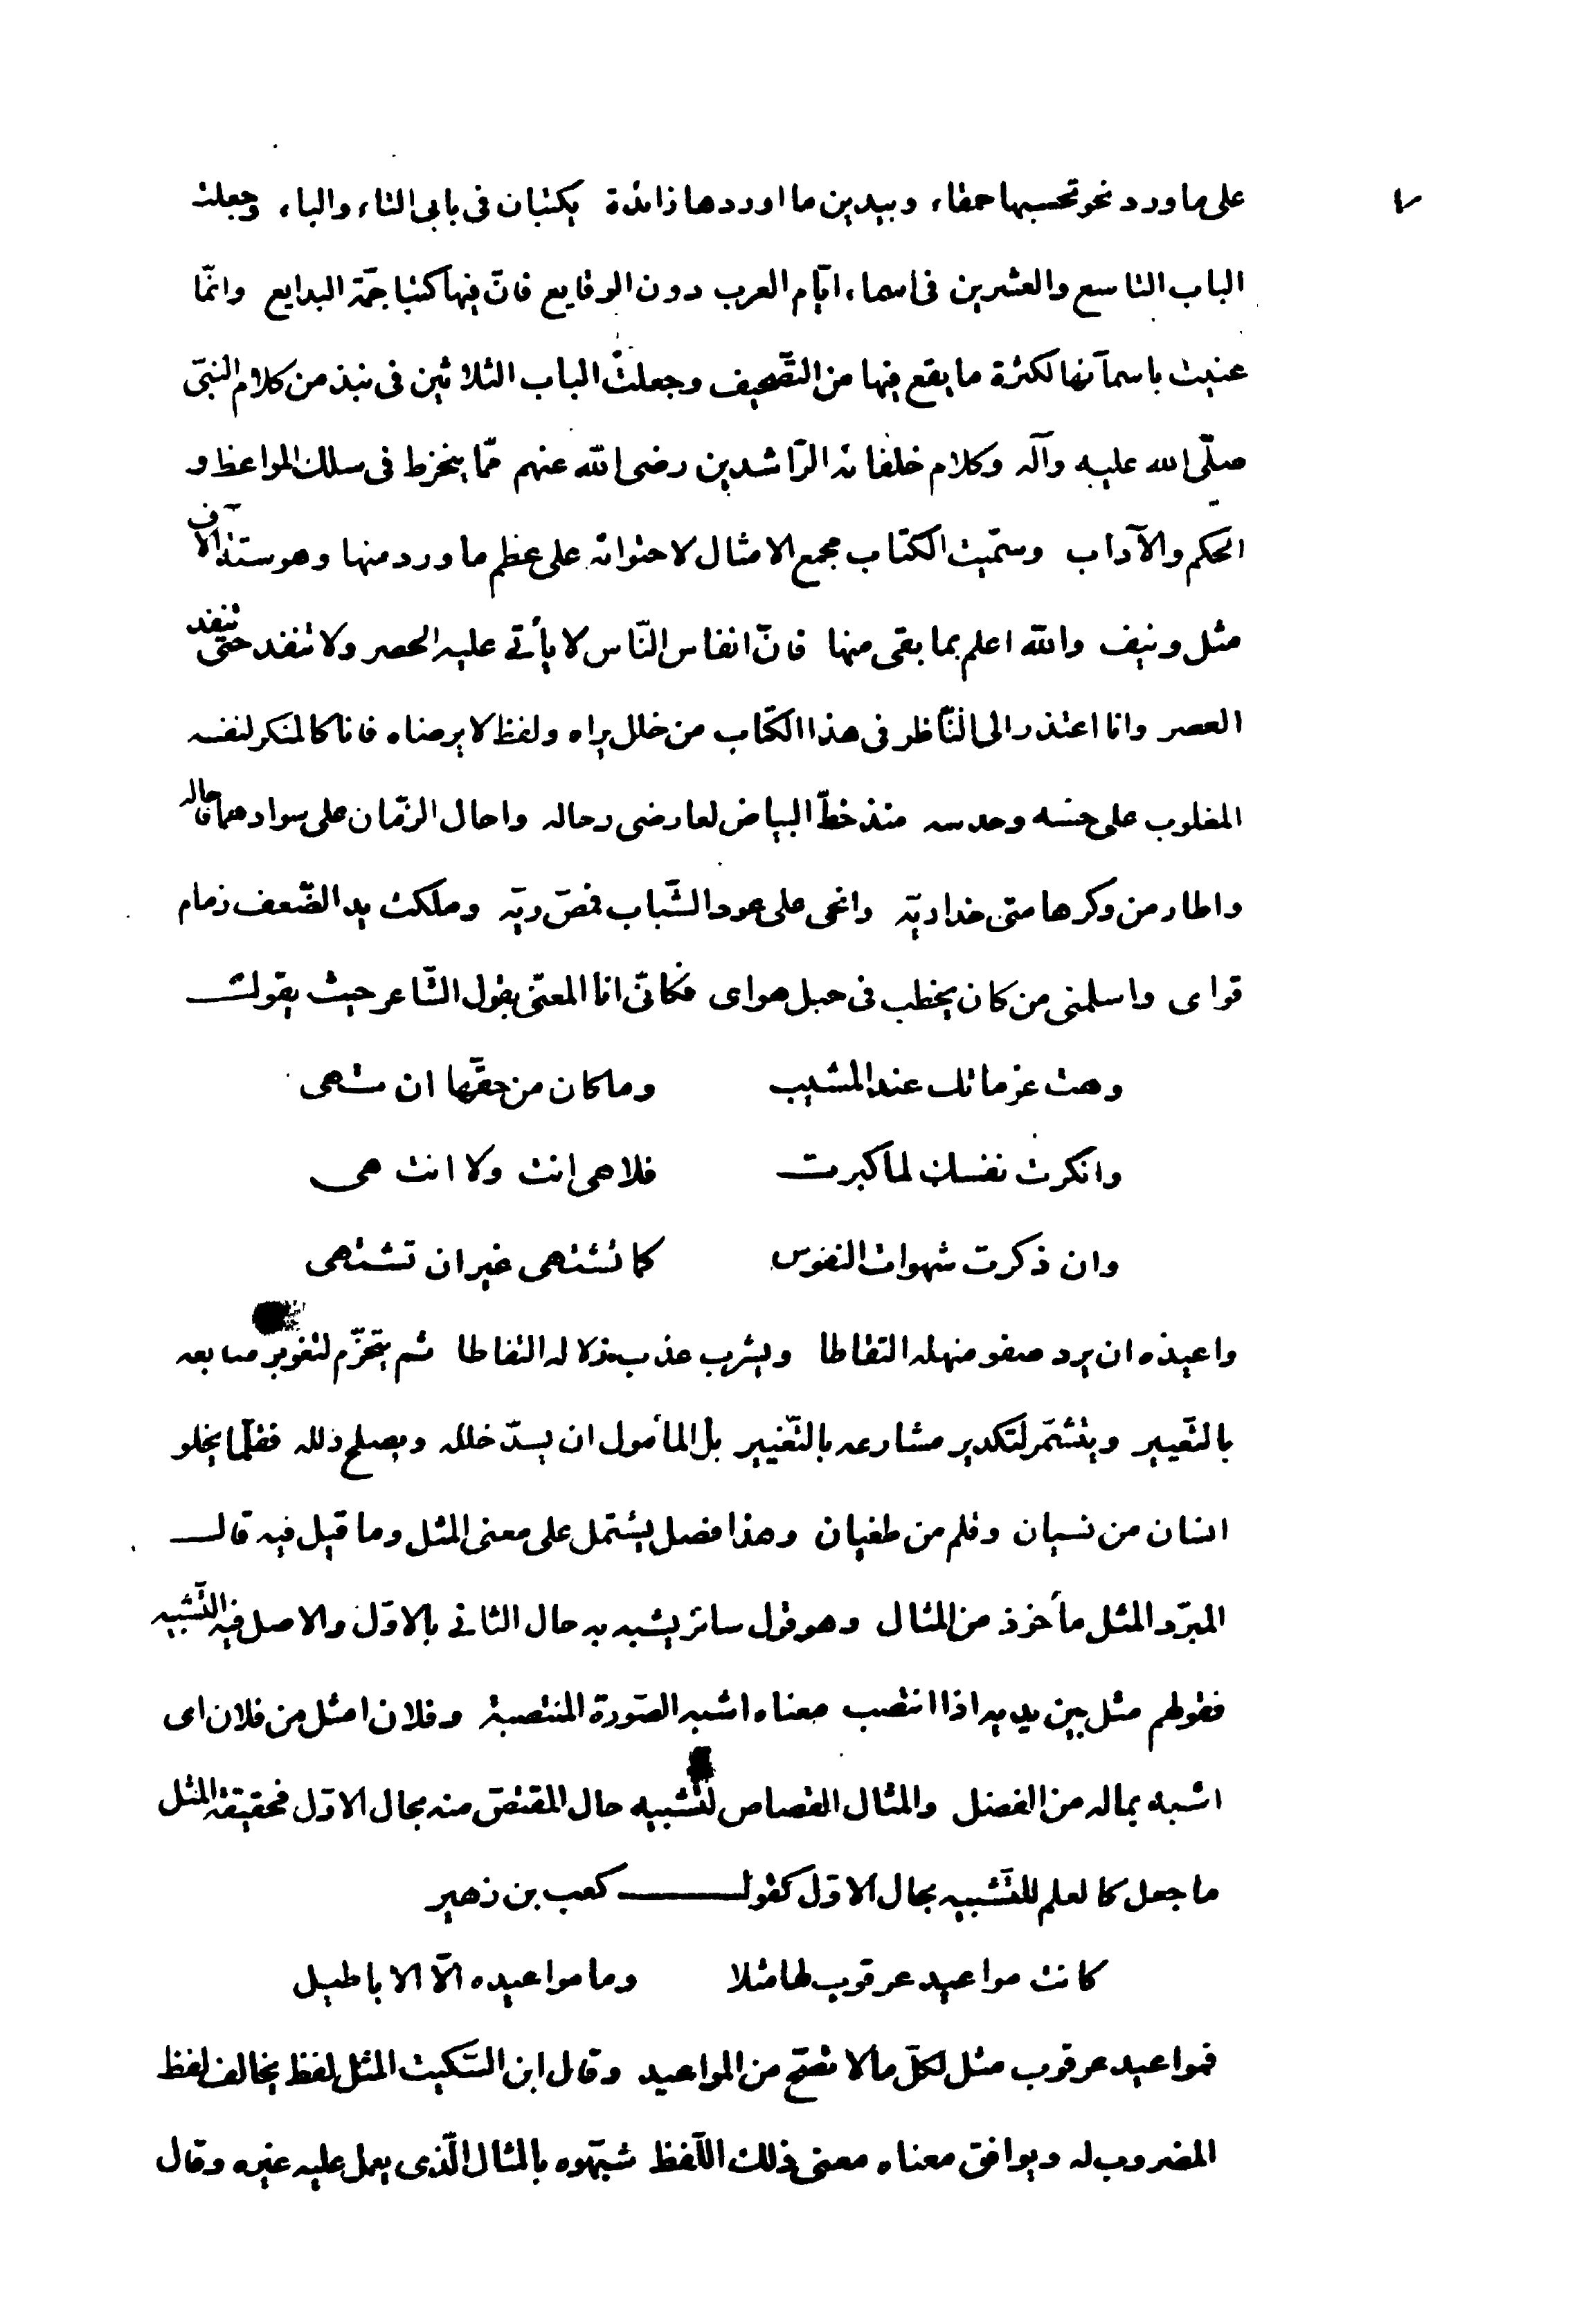 على ما ورد نحو تحسبها حمقاء وبيدين ما اوردها زائدة يكتبان فى بابى التاء والباء وجعلت
الباب التاسع والعشرين فى اسماء ايّام العرب دون الوقايع فانّ فيها كتبا جمّة البدايع وانّما
عنيت باسمآئها لكثرة ما يقع فيها من التّصحيف وجعلت الباب الثلاثين فى نبذ من كلام النبىّ
صلّى الله عليه وآله وكلام خلفائه الرّاشدين رضى الله عنهم ممّا ينخرط فى سلك المواعظ و
الحكم والآداب وسمّيت الكتاب مجمع الامثال لاحتوائه على عظم ما ورد منها وهو ستة آلاف
مثل ونيف والله اعلم بما بقى منها فانّ انفاس النّاس لا يأتى عليه الحصر ولا تنفد حتى تنفد
العصر وانا اعتذر الى النّاظر فى هذا الكتاب من خلل يراه ولفظ لا يرضاه فانا كالمنكر لنفسه
المغلوب على حسّه وحدسه منذ خطّ البياض لعارضى رحاله واحال الزّمان على سوادهما فاحاله
واطار من وكرها منى خداريّه وانحى على عود الشّباب فمصّ ريّه وملكت يد الضّعف زمام
قواى واسلمنى من كان يحطب فى حبل هواى فكانّى انا المعنىّ بقول الشّاعر حيث يقول
وهت عزماتك عند المشيب وما كان من حقّها ان تهى
وانكرت نفسك لما كبرت فلا هى انت ولا انت هى
وان ذكرت شهوات النفوس كما تشتهى غير ان تشتهى
واعيذه ان يرد صفو منهله التقاطا ويشرب عذب زلاله التفاطا ثم يتحزّم لتغوير منابعه
بالتّعيير ويتشمّر لتكدير مشارعه بالتّغيير بل المأمول ان يسدّ خلله ويصلح زلله فقلّما يخلو
انسان من نسيان وقلم من طغيان وهذا فصل يشتمل على معنى المثل وما قيل فيه قال
المبرّد المثل مأخوذ من المثال وهو قول سائر يشبه به حال الثانى بالاوّل والاصل فيه التّشبيه
فقولهم مثل بين يديه اذا انتصب معناه اشبه الصّورة المنتصبة وفلان امثل من فلان اى
اشبه بماله من الفضل والمثال القصاص لتشبيه حال المقتصّ منه بحال الاوّل فحقيقة المثل
ما جعل كالعلم للتّشبيه بحال الاوّل كقول كعب بن زهير
كانت مواعيد عرقوب لها مثلا وما مواعيده الّا الاباطيل
فمواعيد عرقوب مثل لكلّ ما لا تصحّ من المواعيد وقال ابن السّكيت المثل لفظ يخالف لفظ
المضروب له ويوافق معناه معنى ذلك اللّفظ شبّهوه بالمثال الّذى يعمل عليه غيره وقال